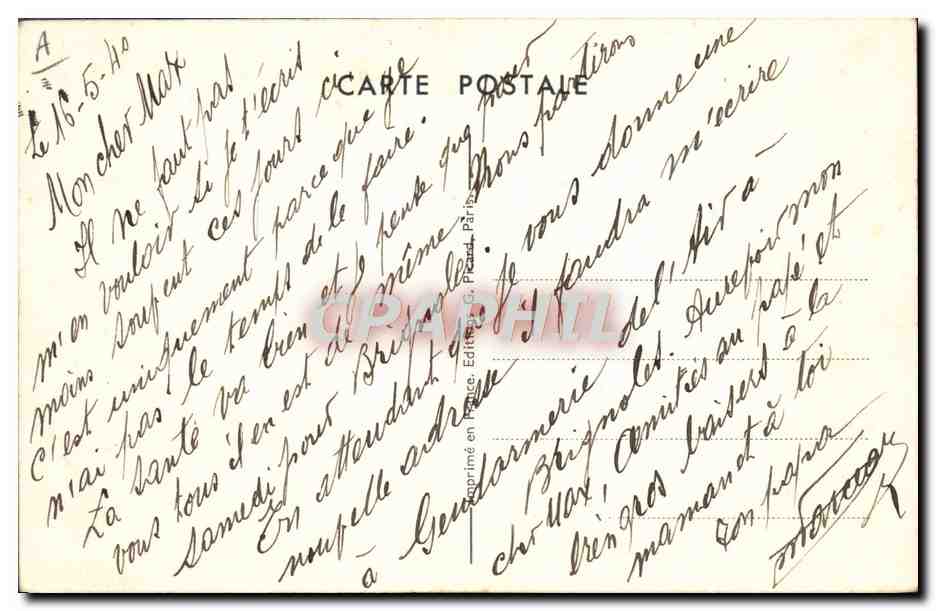 A
CARTE POSTALE
Le 16-5-40
Mon cher Max
Il ne faut pas
m'en vouloir si je t'écris
moins souvent ces jours ci
c'est uniquement parce que je
n'ai pas le temps de le faire.
La santé va bien et je pense que pour
vous tous il en est de même. Nous partirons
samedi pour Brignoles.
En attendant que je vous donne une
nouvelle adresse il faudra m'écrire
à Gendarmerie de l'Air à
Brignoles. Aurevoir mon
cher Max, Amitiés au papé et
bien gros baisers à la
maman et à toi
ton papa
Imprimé en France. Edition G. Picard, Paris.
CPAPHIL